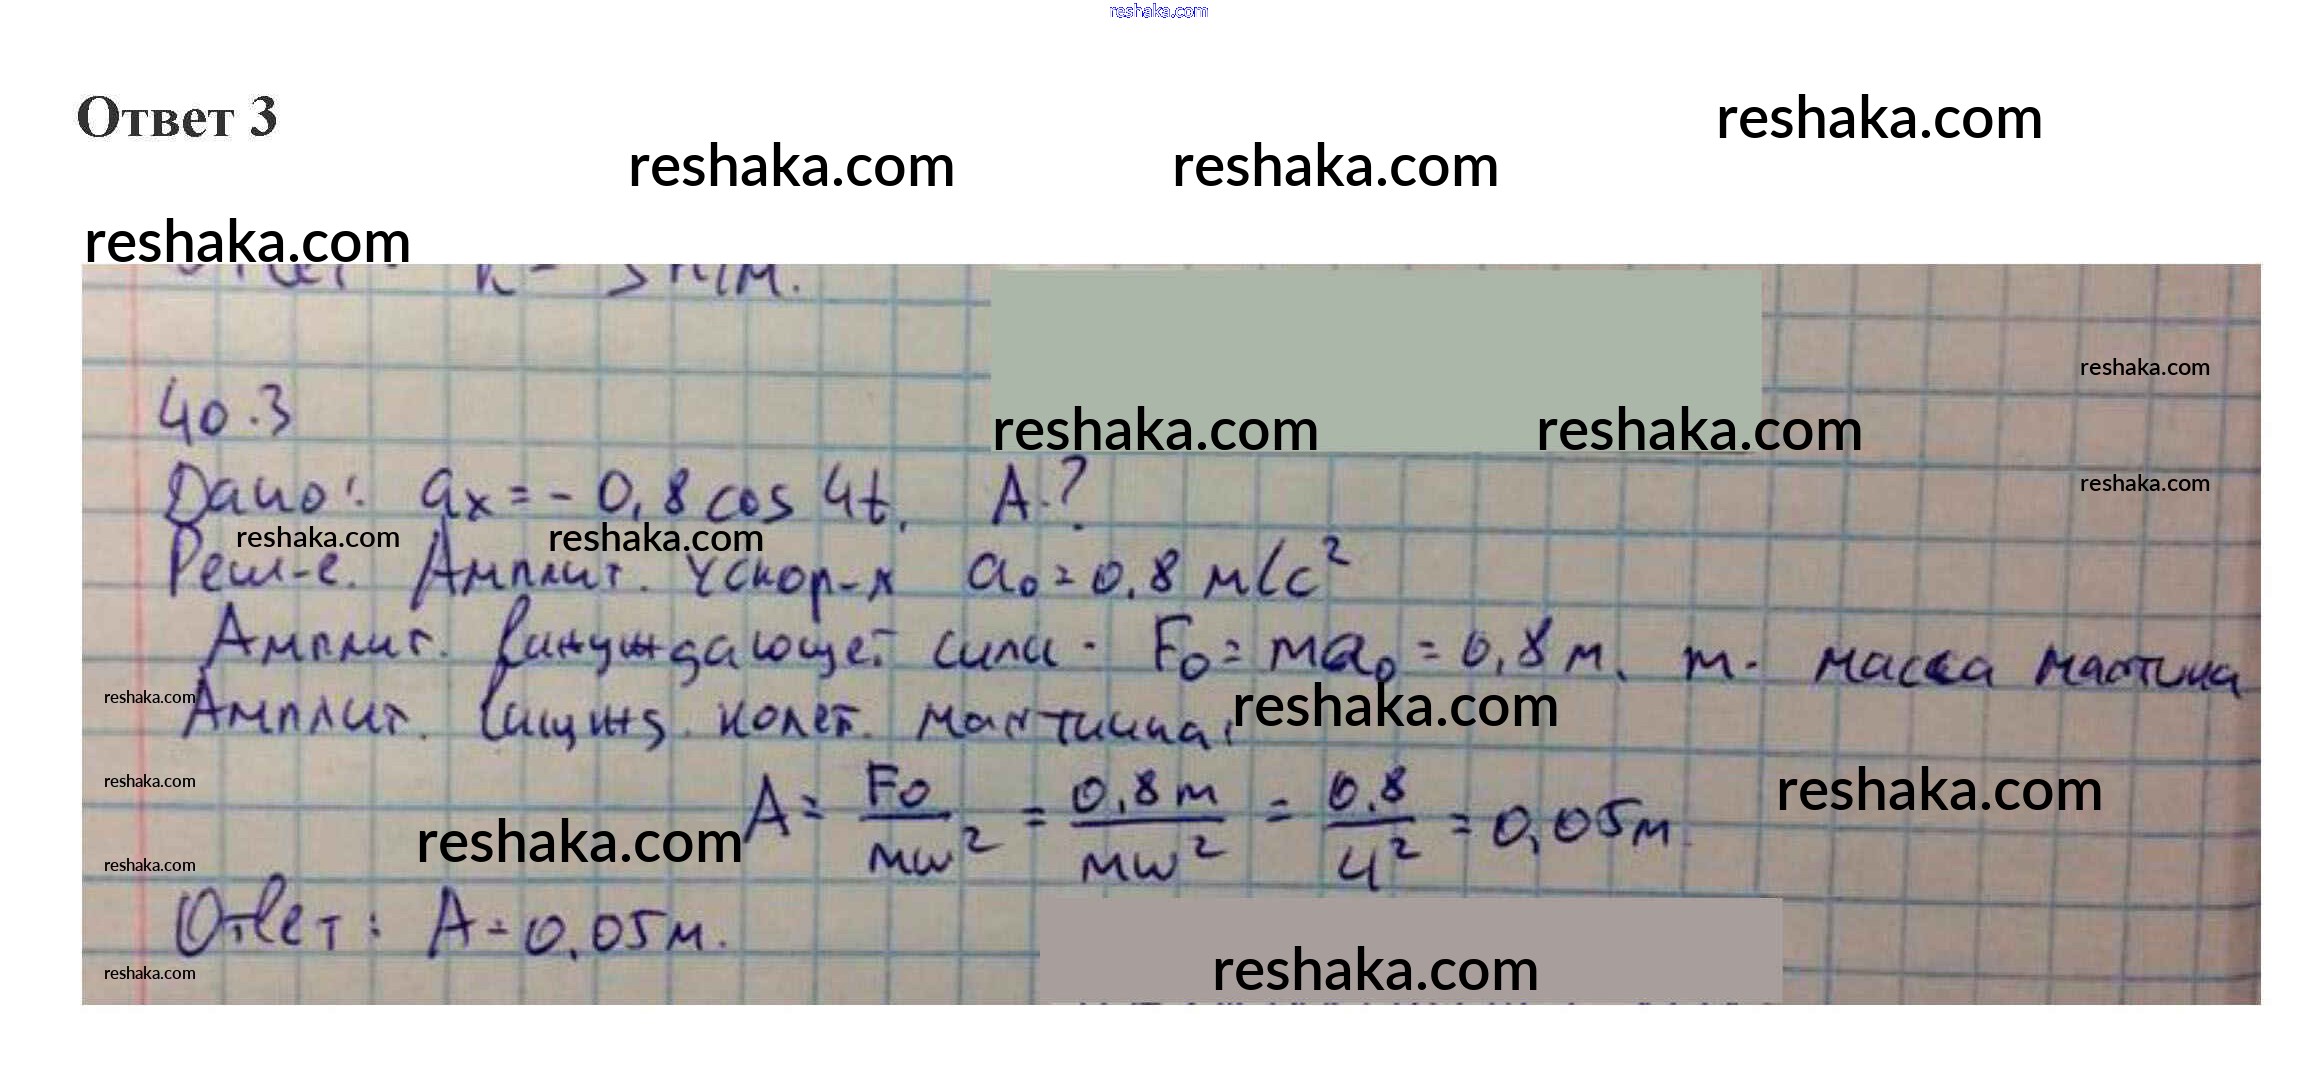 reshaka.com
Ответ 3
reshaka.com
reshaka.com reshaka.com
reshaka.com
reshaka.com
40.3
reshaka.com reshaka.com
Дано: aₓ = - 0,8 cos 4t, A-?
reshaka.com
reshaka.com reshaka.com
Реш-е. Амплит. Ускор-я a₀ = 0,8 м/с²
Амплит. вынуждающей силы - F₀ = ma₀ = 0,8 m, m - масса маятника
reshaka.com reshaka.com
Амплит. колеб. маятника:
reshaka.com reshaka.com
A = F₀/mω² = 0,8m/mω² = 0,8/4² = 0,05м.
reshaka.com
reshaka.com
Ответ: A = 0,05м.
reshaka.com reshaka.com